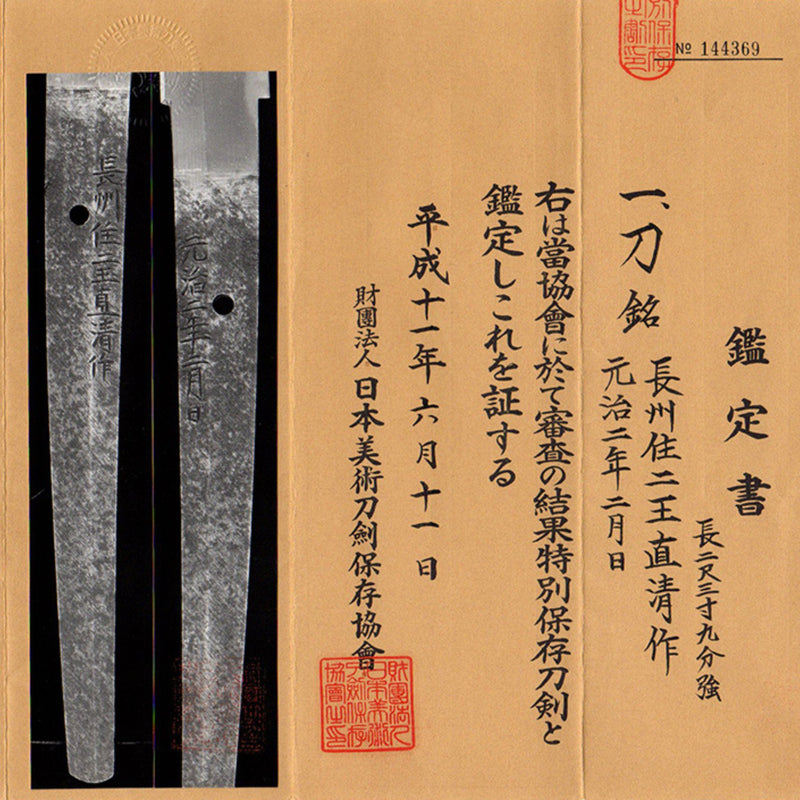 № 144369
鑑定書
一、刀 銘
長州住二王直清作
元治二年二月日
長二尺三寸九分強
右は當協會に於て審査の結果特別保存刀剣と
鑑定しこれを証する
平成十一年六月十一日
財團法人日本美術刀劍保存協會
財團法人
日本美術
刀劍保存
協會之印
長州住二王直清作
元治二年二月日